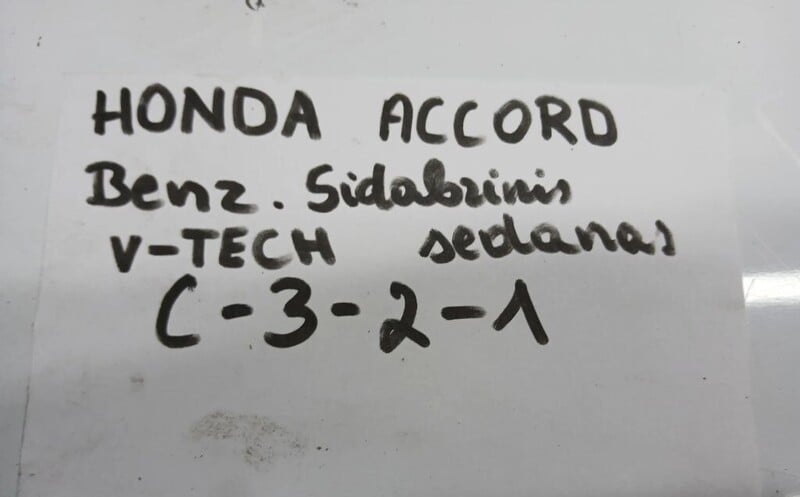 HONDA ACCORD
Benz. Sidabrinis
V-TECH sedanas
C-3-2-1